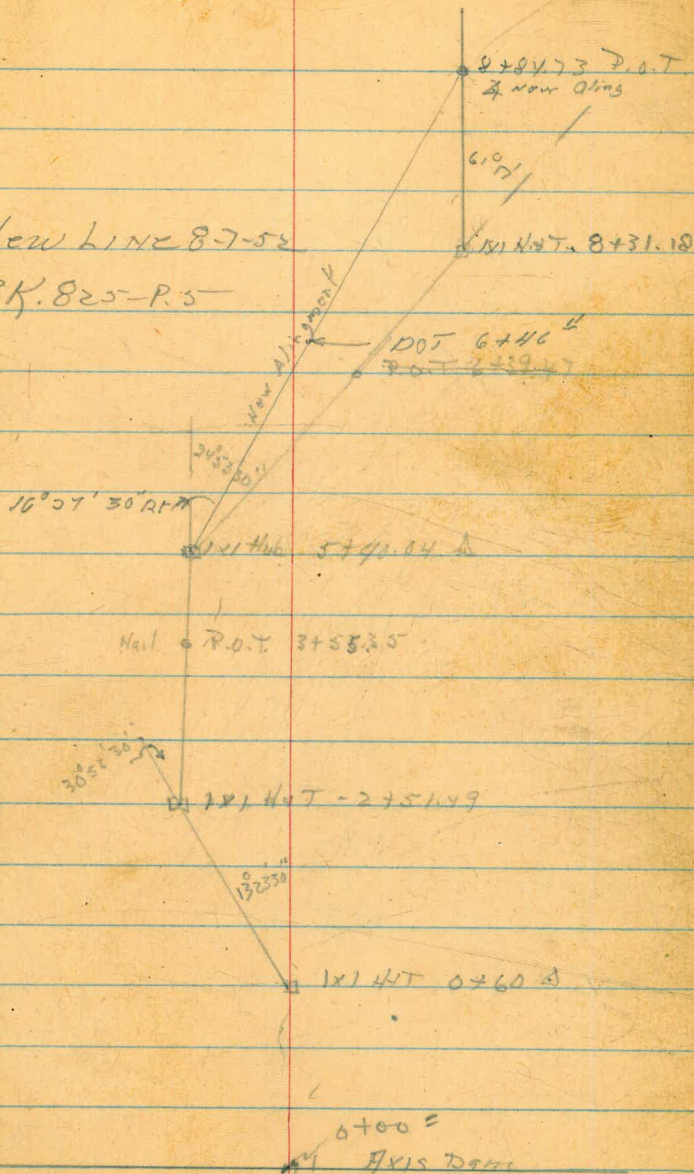 8+84.73 P.O.T.
New Aling
61°17'
New Line 8-7-52
1x1 H&T. 8+31.18
BK. 825-P.5
New Alingment
DOT 6+46
P.O.T. 6+39.47
24°53'30"
16°27'30" Rt
1x1 Hub 5+40.04 Δ
Nail P.O.T. 3+55.35
30°52'30"
1x1 H&T - 2+51.49
132°33'0"
1x1 H&T 0+60 Δ
0+00 =
Axis Dam